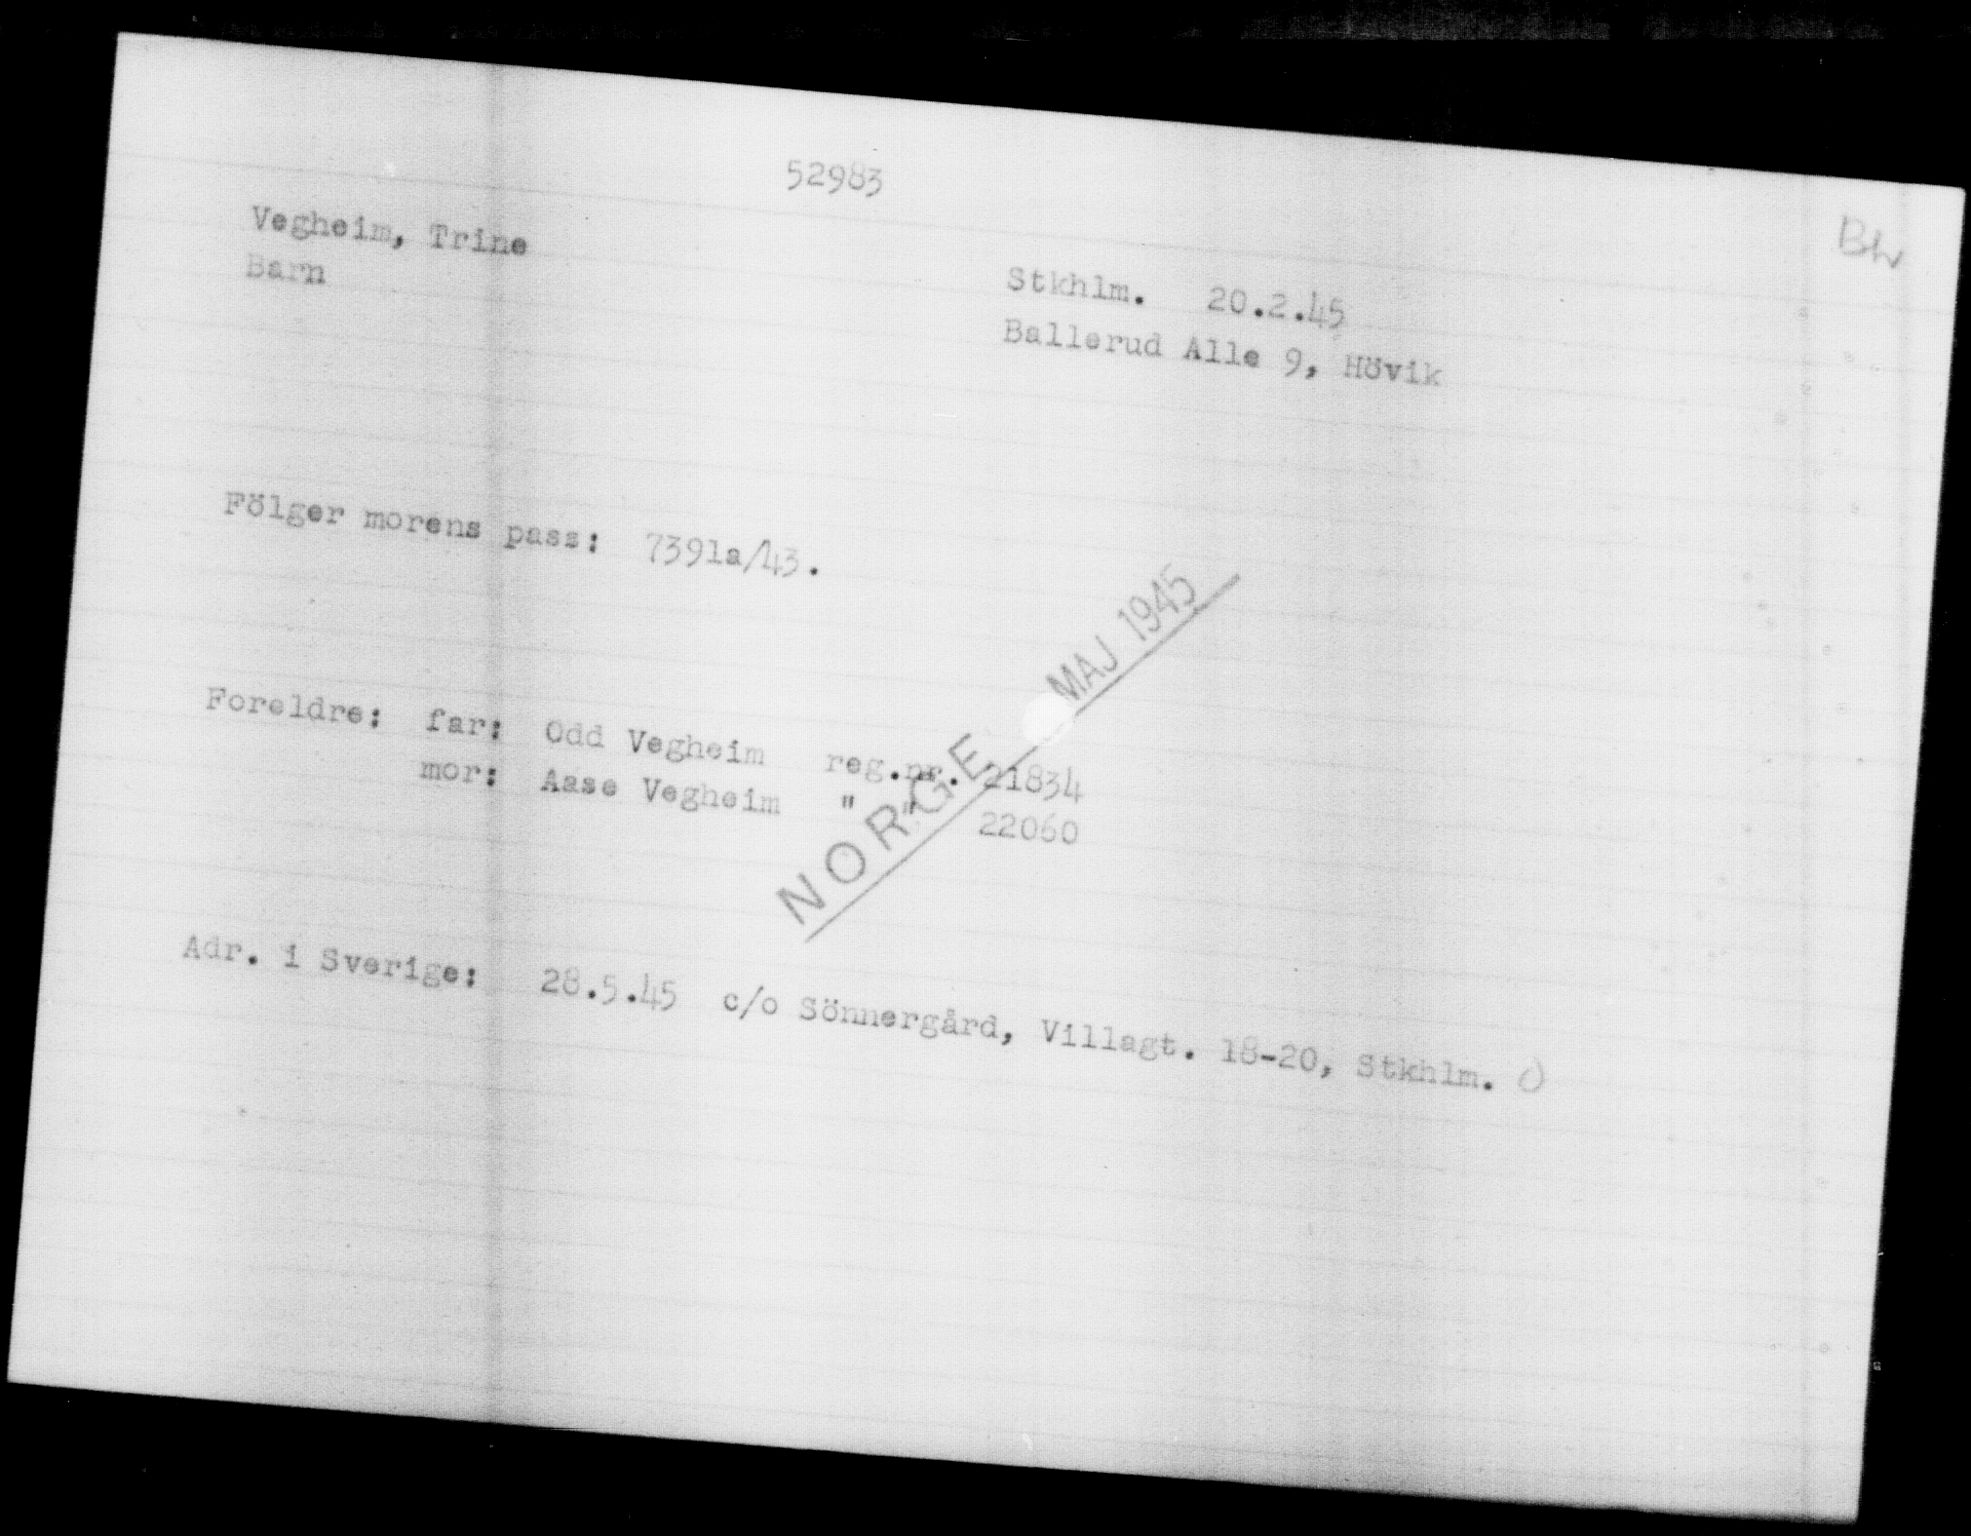 52983
Bw
Vegheim, Trine
Barn
Stkhlm. 20.2.45
Ballerud Alle 9, Hövik
Fölger morens pass: 7391a/43.
NORGE MAJ 1945
Foreldre: far: Odd Vegheim reg.nr. 21834
mor: Aase Vegheim " " 22060
Adr. i Sverige: 28.5.45 c/o Sönnergård, Villagt. 18-20, Stkhlm.